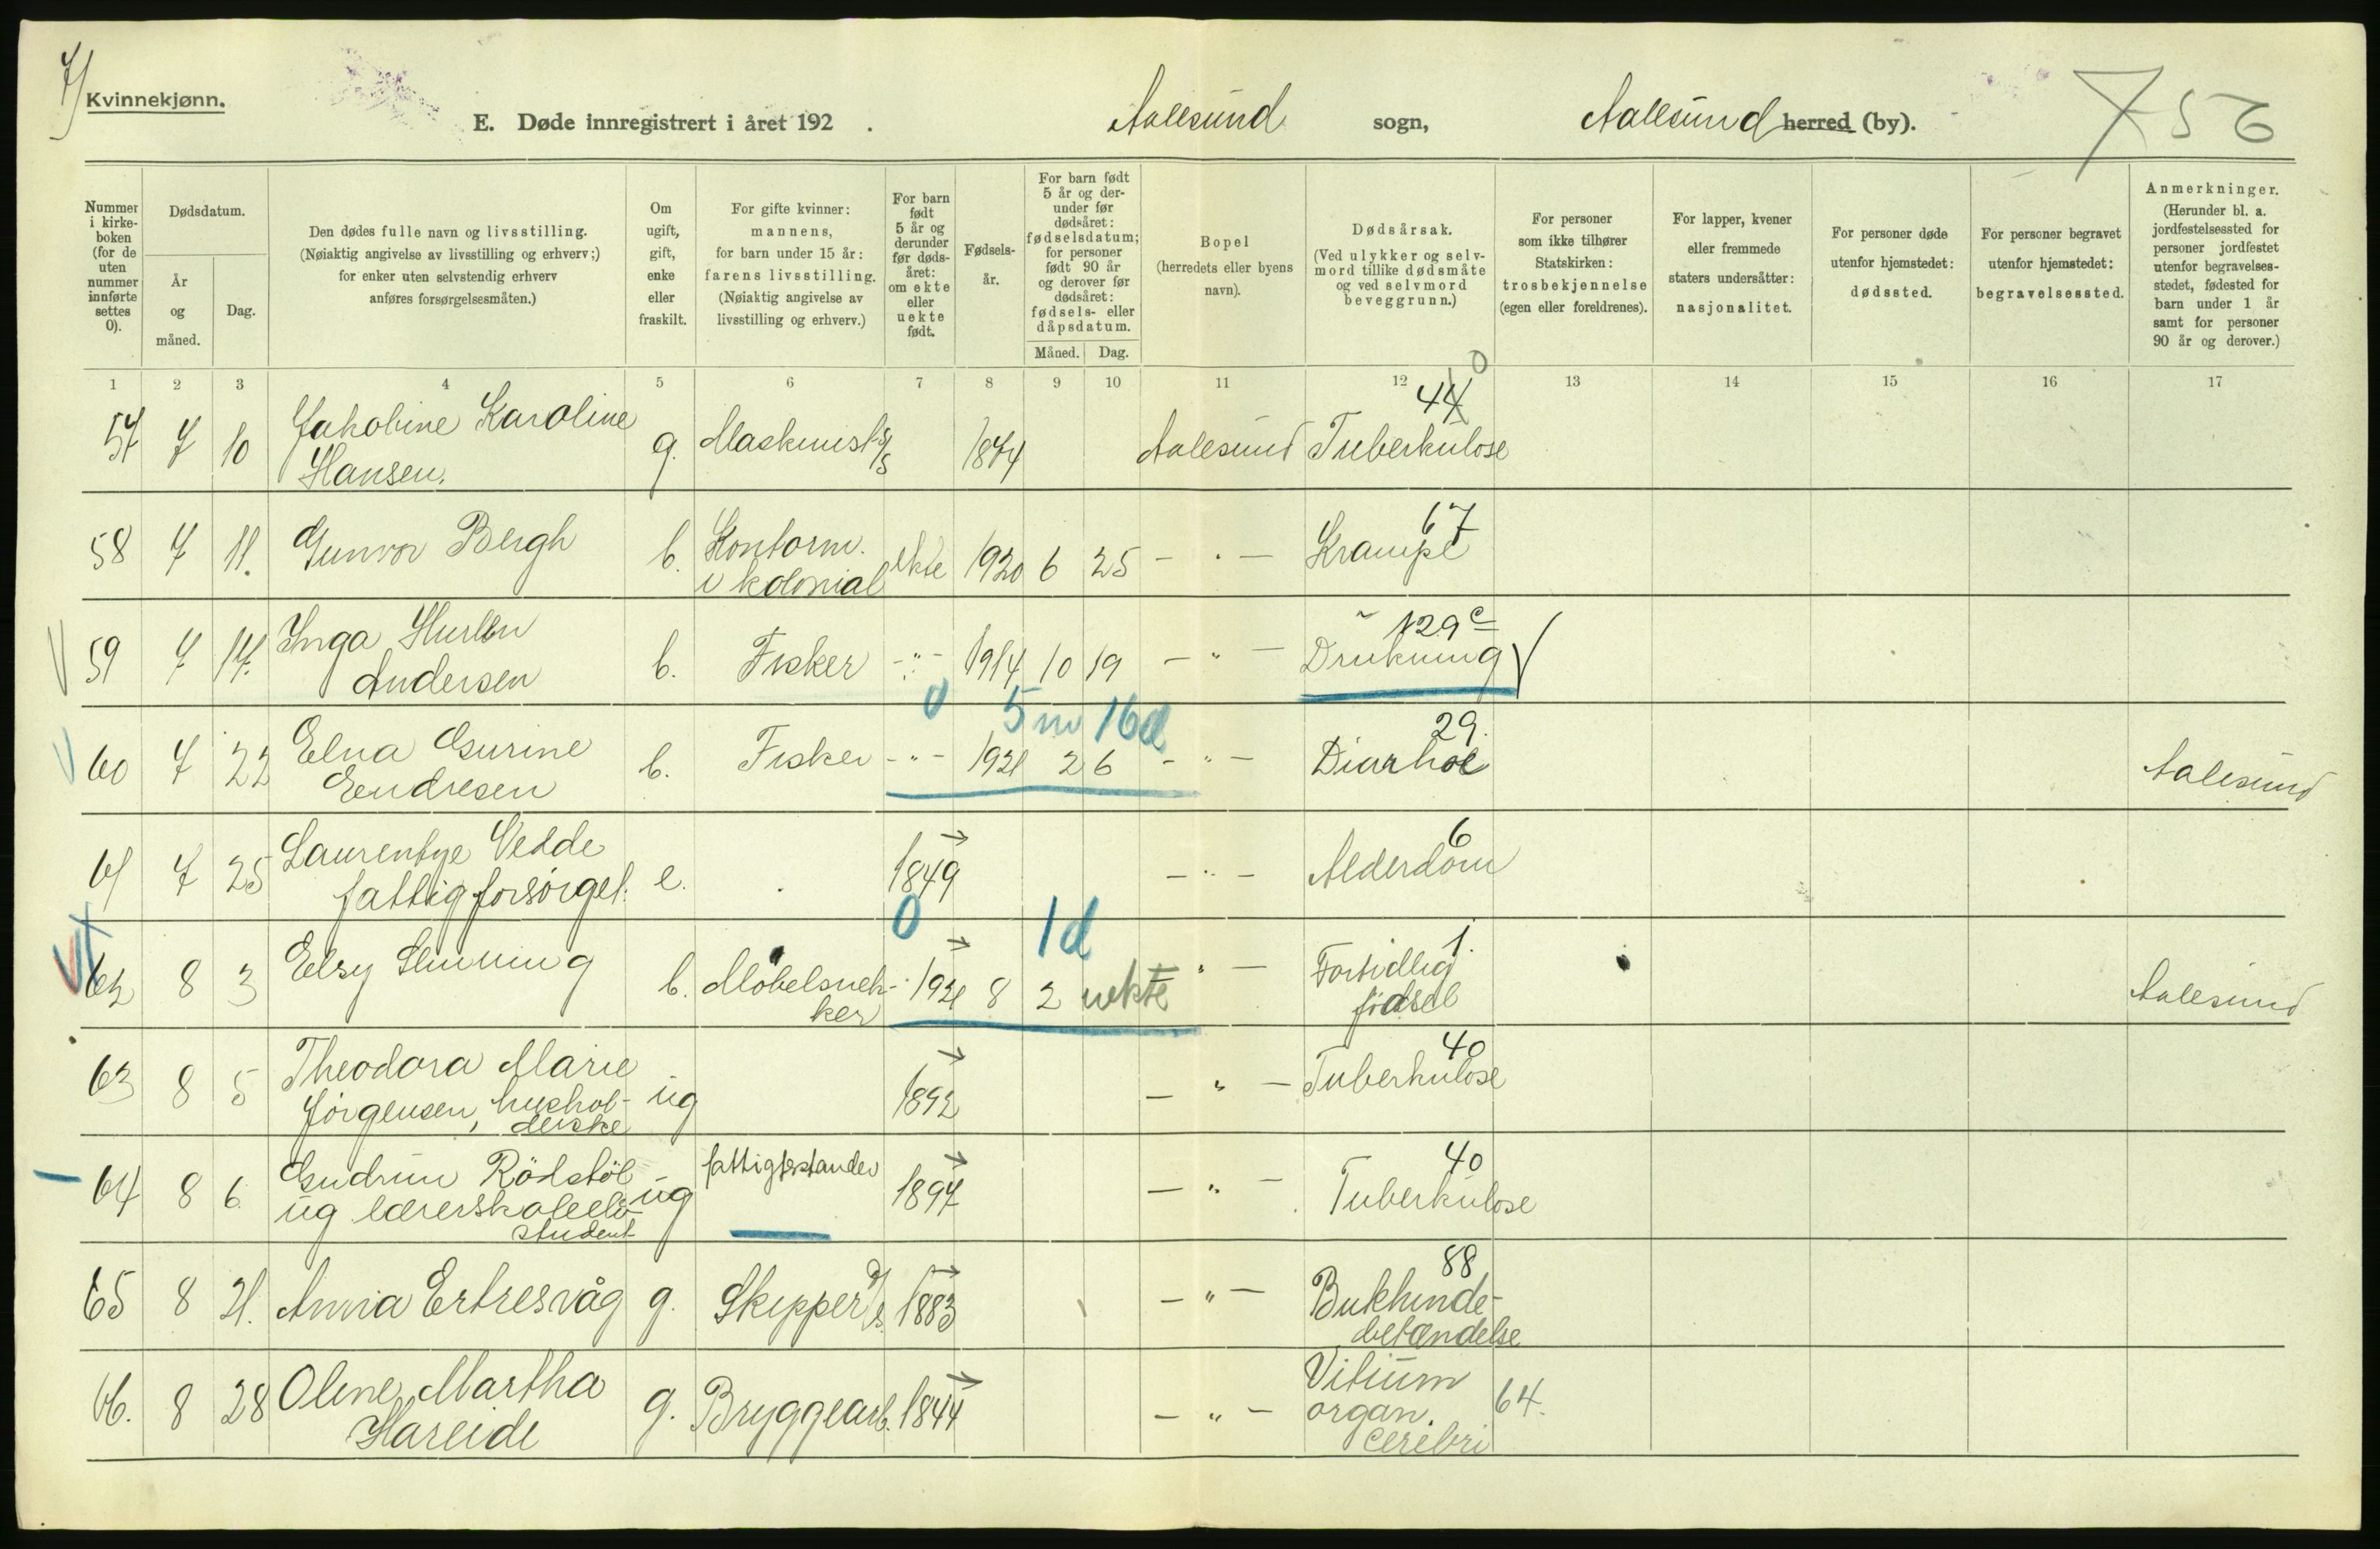 7)
Kvinnekjønn.
E. Døde innregistrert i året 192 .
Aalesund sogn,
Aalesund herred (by).
Nummer i kirke-boken (for de uten nummer innførte settes 0).
Dødsdatum.
År og måned.
Dag.
Den dødes fulle navn og livsstilling. (Nøiaktig angivelse av livsstilling og erhverv;) for enker uten selvstendig erhverv anføres forsørgelsesmåten.)
Om ugift, gift, enke eller fraskilt.
For gifte kvinner: mannens, for barn under 15 år: farens livsstilling. (Nøiaktig angivelse av livsstilling og erhverv.)
For barn født 5 år og derunder før døds-året: om ekte eller uekte født.
Fødsels-år.
For barn født 5 år og der-under før dødsåret: fødselsdatum; for personer født 90 år og derover før dødsåret: fødsels- eller dåpsdatum.
Måned. Dag.
Bopel (herredets eller byens navn).
Dødsårsak. (Ved ulykker og selv-mord tillike dødsmåte og ved selvmord beveggrunn.)
For personer som ikke tilhører Statskirken: trosbekjennelse (egen eller foreldrenes).
For lapper, kvener eller fremmede staters undersåtter: nasjonalitet.
For personer døde utenfor hjemstedet: dødssted.
For personer begravet utenfor hjemstedet: begravelsessted.
Anmerkninger. (Herunder bl. a. jordfestelsessted for personer jordfestet utenfor begravelses-stedet, fødested for barn under 1 år samt for personer 90 år og derover.)
1 2 3 4 5 6 7 8 9 10 11 12 13 14 15 16 17
57 7 10 Jakobine Karoline Hansen. g. Maskinist 1874 Aalesund Tuberkulose
58 7 11. Gunvor Bergh b. Kontorm. i kolonial ekte 1920 6 25 - " - 67 Krampe
59 7 17. Inga Hurlen Andersen b. Fisker - " - 1914 10 19 - " - 129c Drukning
0 5 m 16 d
60 7 22 Elna Gurine Endresen b. Fisker - " - 1921 2 6 - " - 29. Diarhoe Aalesund
61 7 25 Laurentze Vedde fattigforsörget. e. 1849 - " - 6 Alderdom
0 1d
62 8 3 Elsy b. Möbelsnekker 1921 8 2 uekte " - 1. Fortidlig födsel Aalesund
63 8 5 Theodora Marie Jörgensen, husholderske ug 1892 - " - 40 Tuberkulose
64 8 6. Gudrun Rödstöl ug lærerskoleelev student ug fattigforstander 1897 - " - 40 Tuberkulose
65 8 21. Anna Ertresvåg g. Skipper D/S. 1883 - " - 88 Bukhinde-betændelse
66. 8 28 Oline Martha Hareide g. Bryggearb. 1844 - " - Vitium organ. cerebri 64.